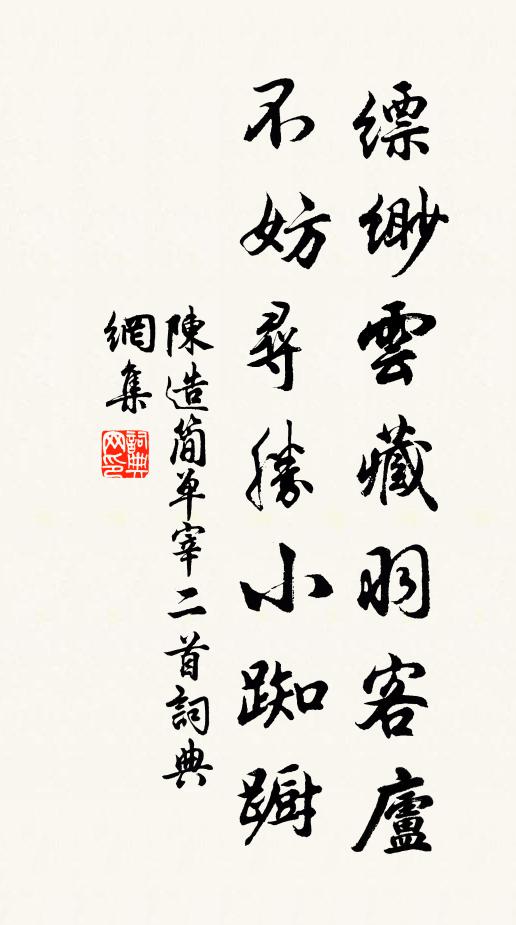 縹緲雲藏羽客廬
不妨尋勝小踟躕
陳造簡單宰二首詞典
網集
詞典
网印